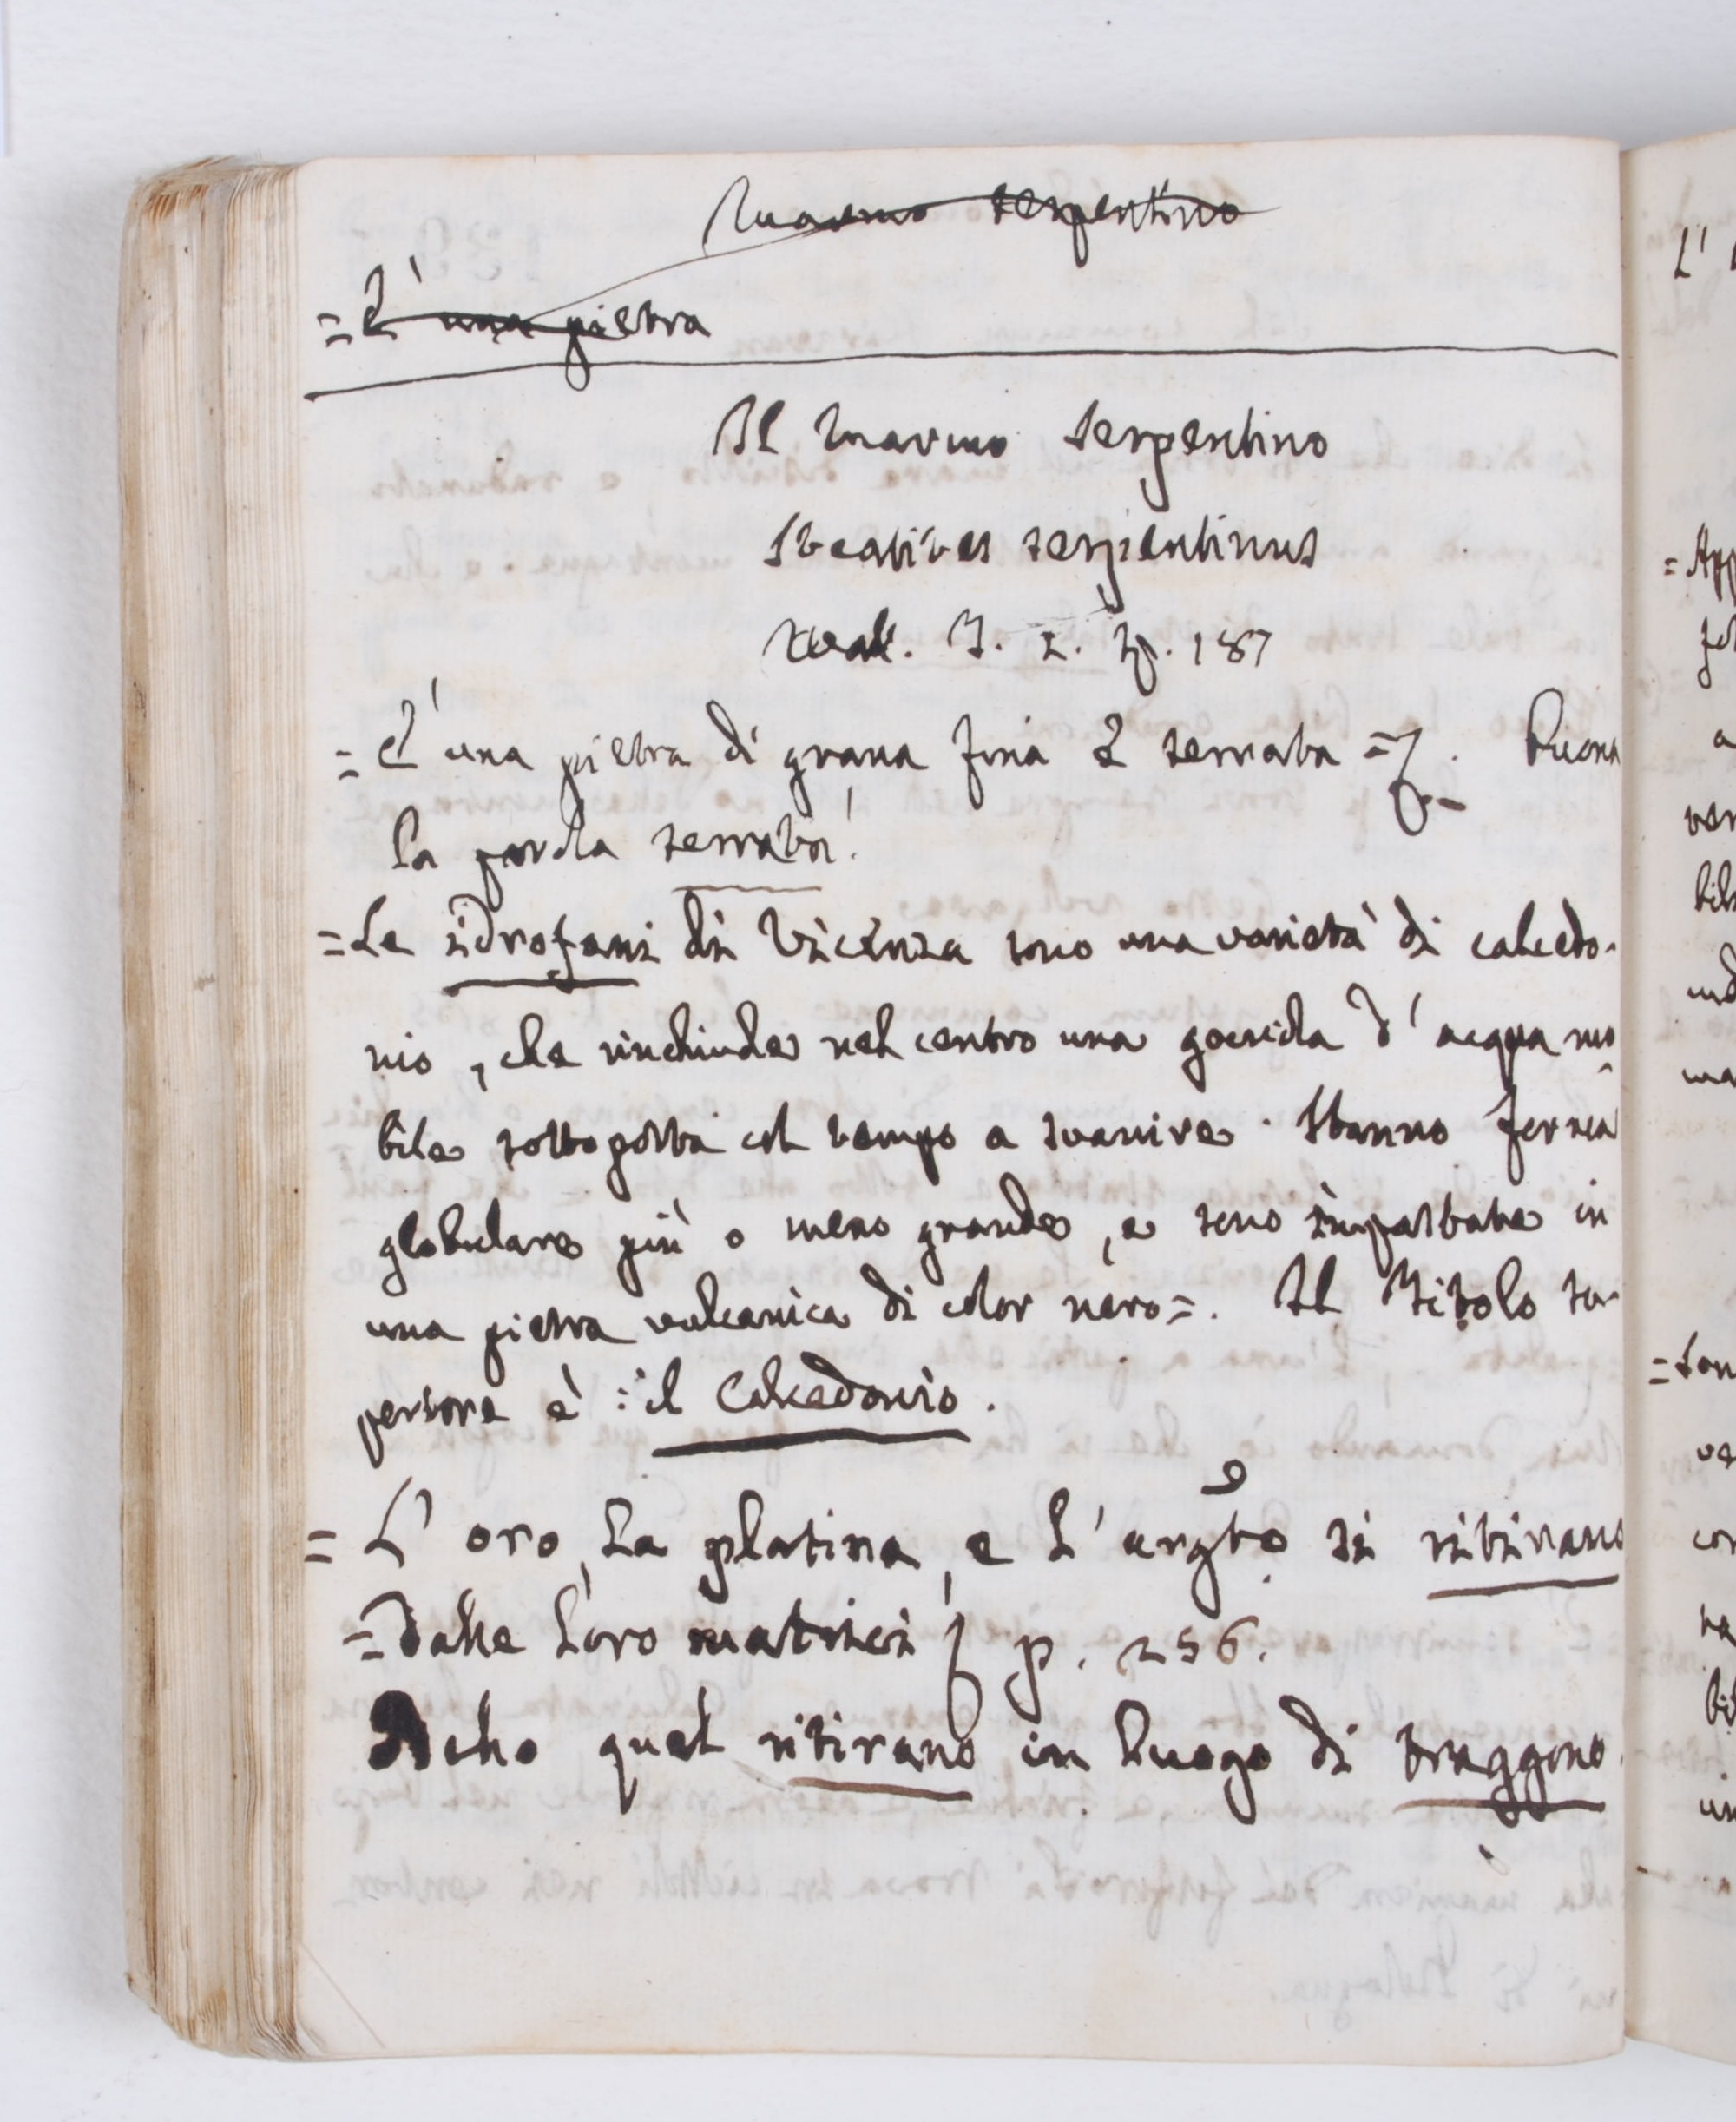 Marmo serpentino
= E' una pietra
Il Marmo Serpentino
Steatites serpentinus
Wall. T. 2. p. 187
= E' una pietra di grana fina e serrata =. Buona
la parola serrata!
= Le idrofani di Vicenza sono una varietà di calcedo-
nio, che rinchiude nel centro una goccicla d'acqua mo
bile sottoposta col tempo a svanire. Hanno forma
globulare più o meno grande, e sono impastate in
una pietra vulcanica di color nero =. Il Titolo su-
periore è : il Calcedonio.
= L' oro, la platina, e l' argto si ritirano
= dalle loro matrici p. 256.
Bello quel ritirano in luogo di traggono.
L'
= App
= son